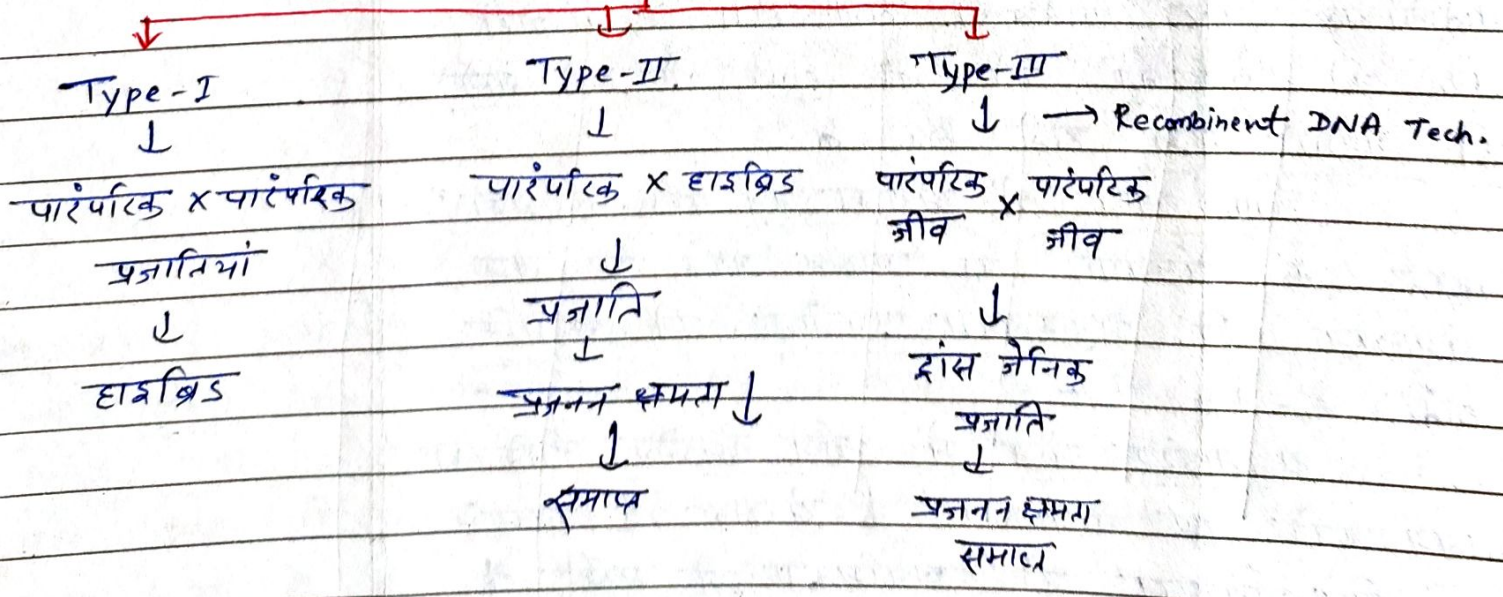 Type-I
↓
पारंपरिक x पारंपरिक
प्रजातियां
↓
हाइब्रिड
Type-II
↓
पारंपरिक x हाइब्रिड
↓
प्रजाति
↓
प्रजनन क्षमता ↓
↓
समाप्त
Type-III
↓ → Recombinent DNA Tech.
पारंपरिक x पारंपरिक
जीव जीव
↓
ट्रांस जेनिक
प्रजाति
↓
प्रजनन क्षमता
समाप्त